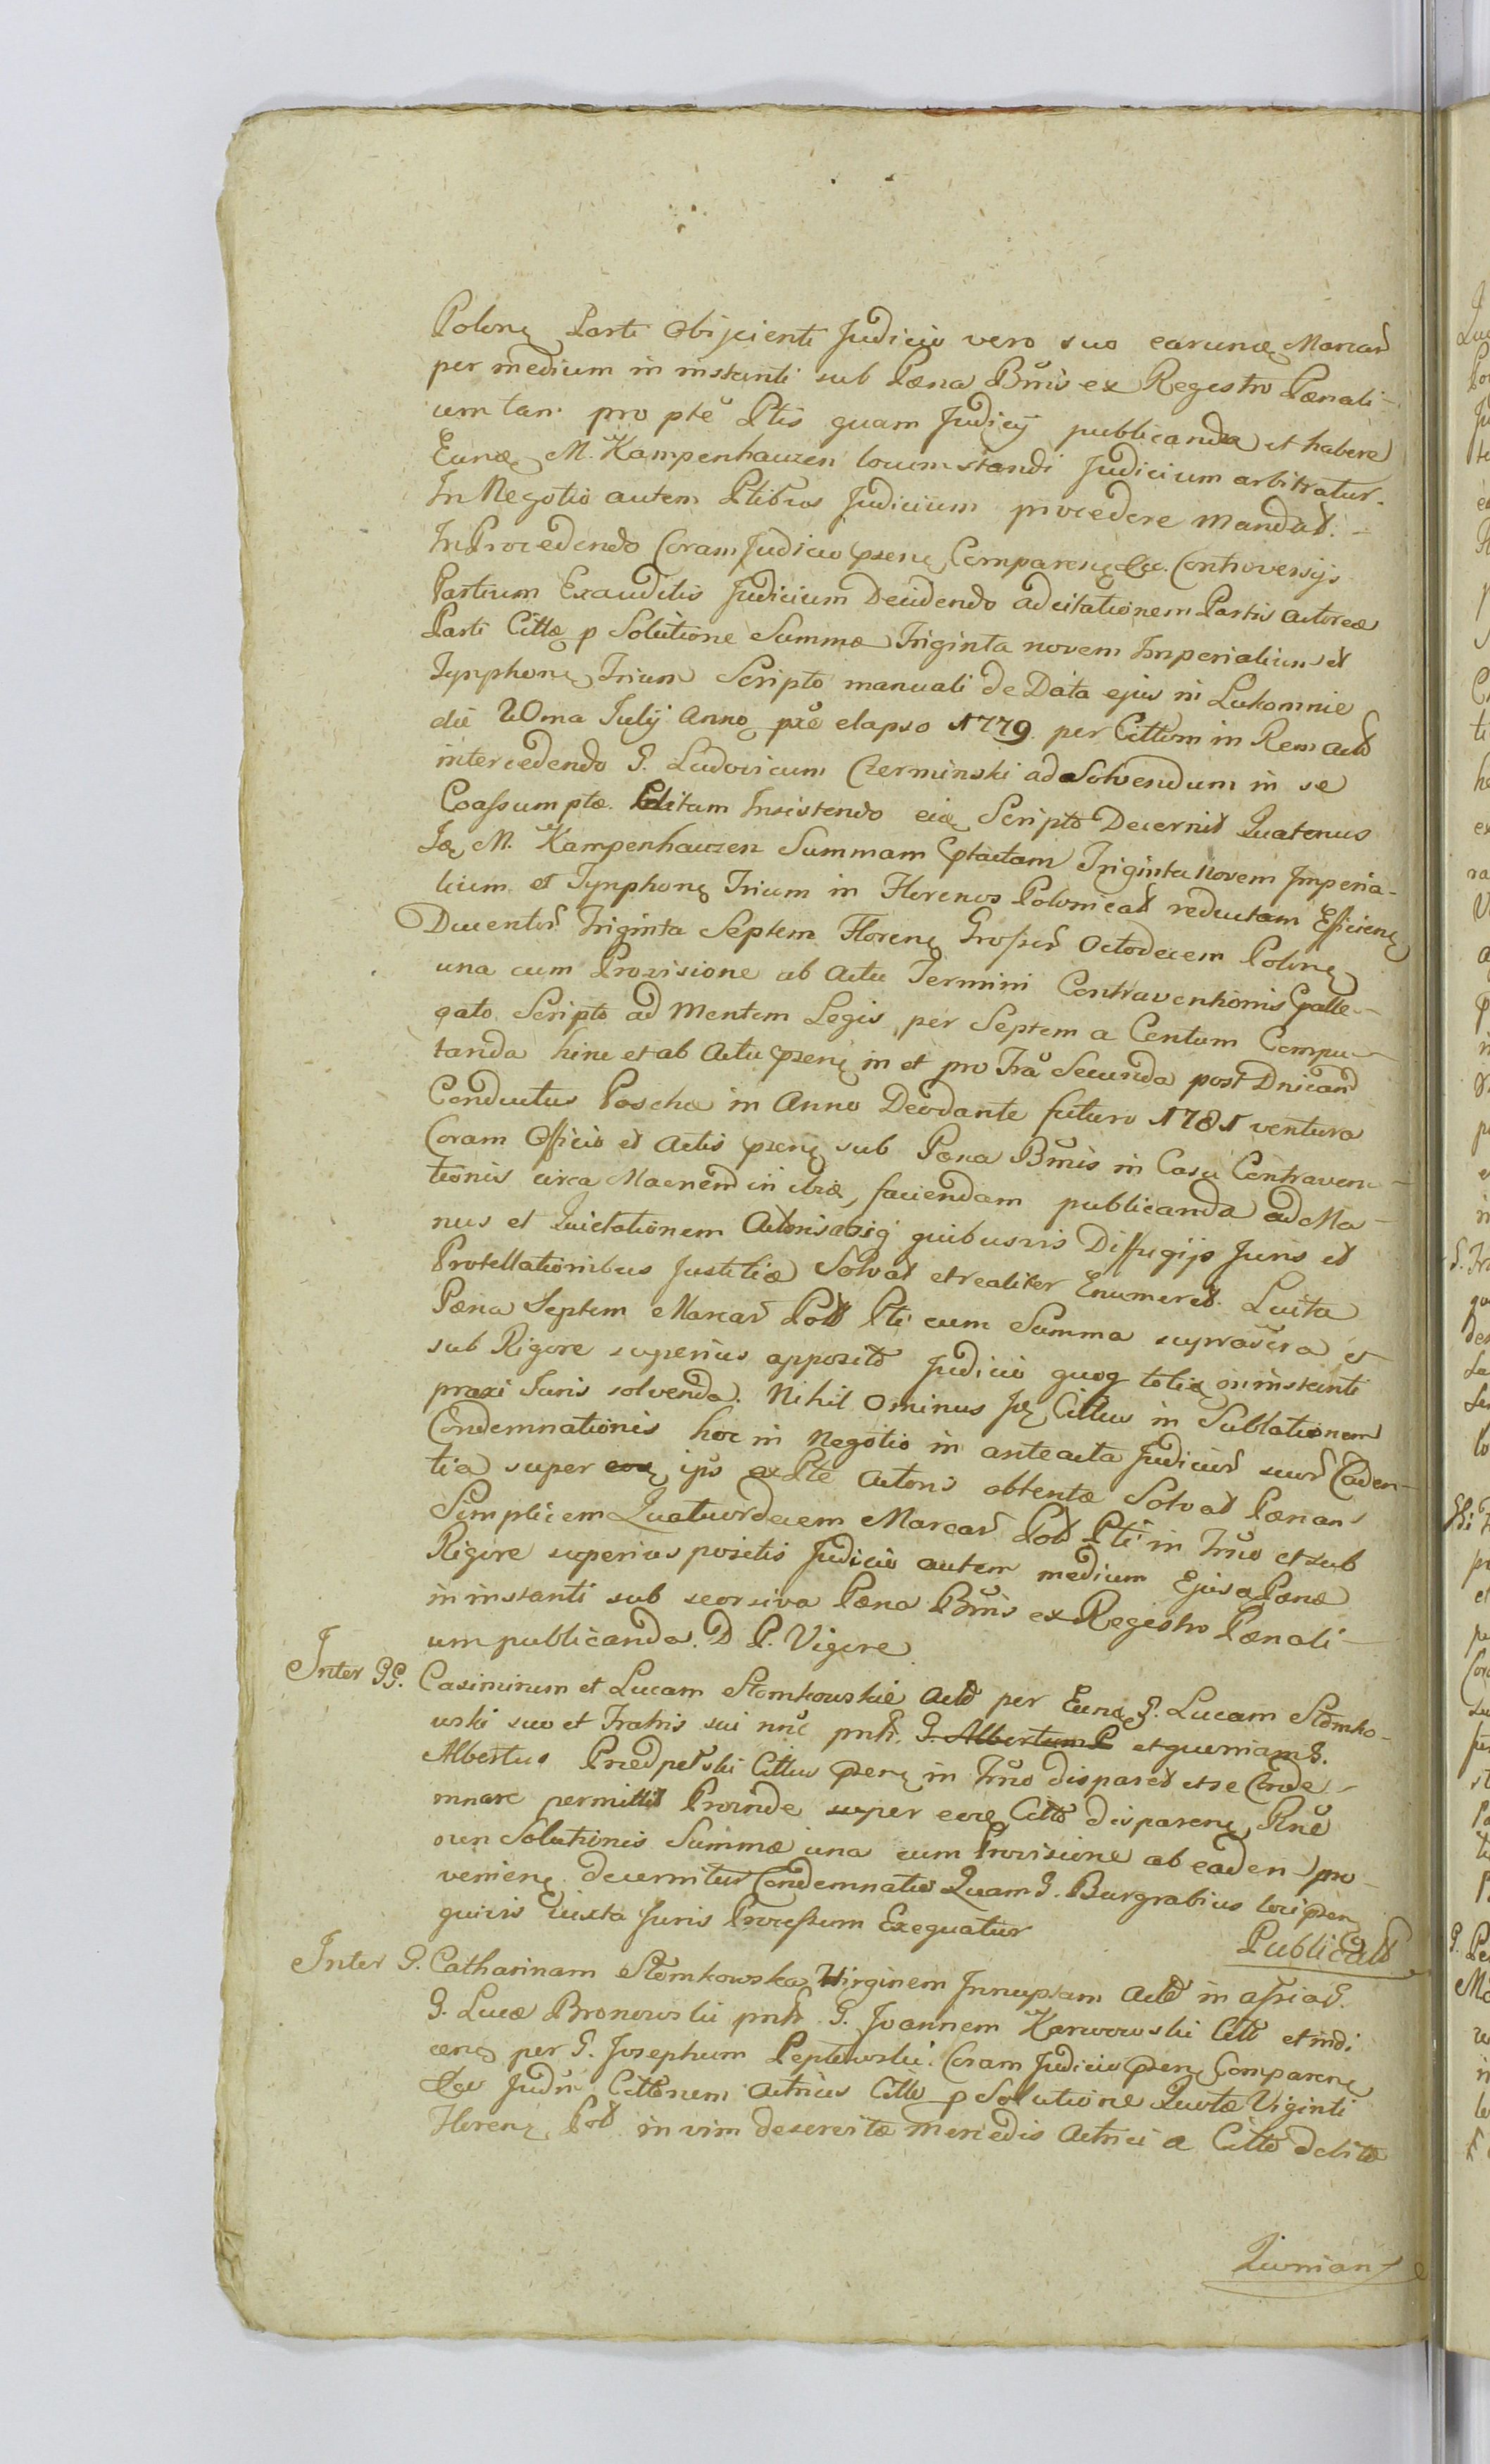 Polonę Parti Obijcienti Judicio vero suo earundę Marcar̃
per medium in instanti sub Pæna Bm̃is ex Regestro Pænali-
um tam pro pte Ptis quam Judicij publicanda et habere
Eundę M. Kampenhauzen locum standi Judicium arbitratur.
In Negotio autem Ptibus Judicium procedere mandat.
In Procedendo Coram Judicio pzenę Comparenę &c. Controversijs
Partium Exauditis Judicium Decidendo ad citationem Partis actoreæ
Parti Cittæ p Solutione Summæ Triginta novem Imperialium et
Tynphonę Trium Scripto manuali de Data ejus in Lukomnie
die 20ma Julij Anno pxe elapso 1779 per Cittum in Rem Acto
intercedendo G. Ludovicum Czerminski ad Solvendum in se
Coassumptæ Editam Insistendo eidę Scripto Decernit Quatenus
Idę M. Kampenhauzen Summam Triginta Novem Imperia-
lium et Tynphonę Trium in Florenos Polonical reductam Efficienę
Ducentor̃ Triginta Septem Florenę Grossor̃ Octodecem Polonę
una cum Provisione ab actu Termini Contraventionis Spalle-
gato Scripto ad Mentem Legis per Septem a Centum Compu-
tanda hinc et ab Actu pzenę in et pro Fra Secunda post Dnicam
Conductus Paschæ in Anno Deodante futuro 1781 ventura
Coram Officio et Actis pzenę sub Pæna Bm̃is in Casu Contraven-
tionis circa faciendam publicanda ad Ma-
nus et Quietationem Actoris absq quibusvis Diffugijs Juris et
Protellationibus Justitiæ Solvat et realiter Enumeret. Luita
Pæna Septem Marcar̃ Poll Pti cum Summa suprascra et
sub Rigore superius apposito Judicio quoq totię in instanti
praxi Juris solvenda. Nihil Ominus Idę Cittus in Sublationem
Condemnationis hoc in Negotio in anteacta Judicior̃ suor̃ Caden-
tia super ips ex Pte Actoris obtentæ Solvat Pænam
Simplicem Quatuordecem Marcar̃ Poll Pti in Trno et sub
Rigore superius positis Judicio autem medium Ejusd Pænæ
in instanti sub seorsiva Pæna Bm̃is ex Regestro Pænali-
um publicanda. D. P. Vigore.
Inter GG. Casimirum et Lucam Słomkowskie Acto per Eundę G. Lucam Słomko-
wski suo et Fratris sui nne pntr. G. Albertum P et queniam G.
Albertus Przedpełski Cittus pzenę in Trno disparet et se Conde-
mnare permittit Proinde super eodę Citto disparenę Rne
non Solutionis Summæ una cum Provisione ab eadem pro-
venienę decernitur Condemnatio Quam G. Burgrabius loci pzen
quivis iuxta Juris Processum Exequatur
Publicatt
Inter G. Catharinam Słomkowska Virginem Innuptam Acto in assia G.
G. Lucæ Bronowski pntr. G. Joannem Karwowski Citto et indi
cenę per G. Josephum Peptowski. Coram Judicio pzenę Comparenę
&c Judm Cittonem Actricis Citto p Solutione Quotæ Viginti
Florenę Poll in vim deservitæ Mercedis Actrici a Citto debitæ
Quoniam